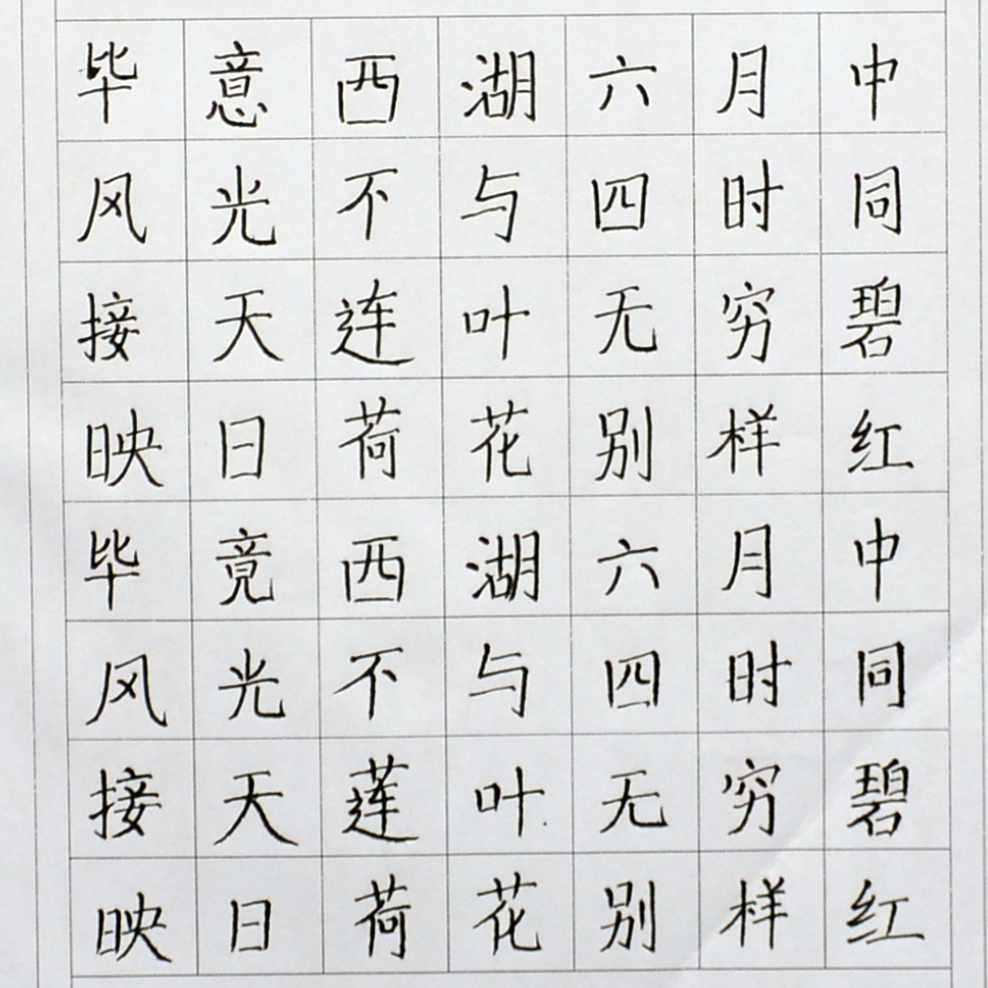 毕意西湖六月中
风光不与四时同
接天连叶无穷碧
映日荷花别样红
毕竟西湖六月中
风光不与四时同
接天莲叶无穷碧
映日荷花别样红